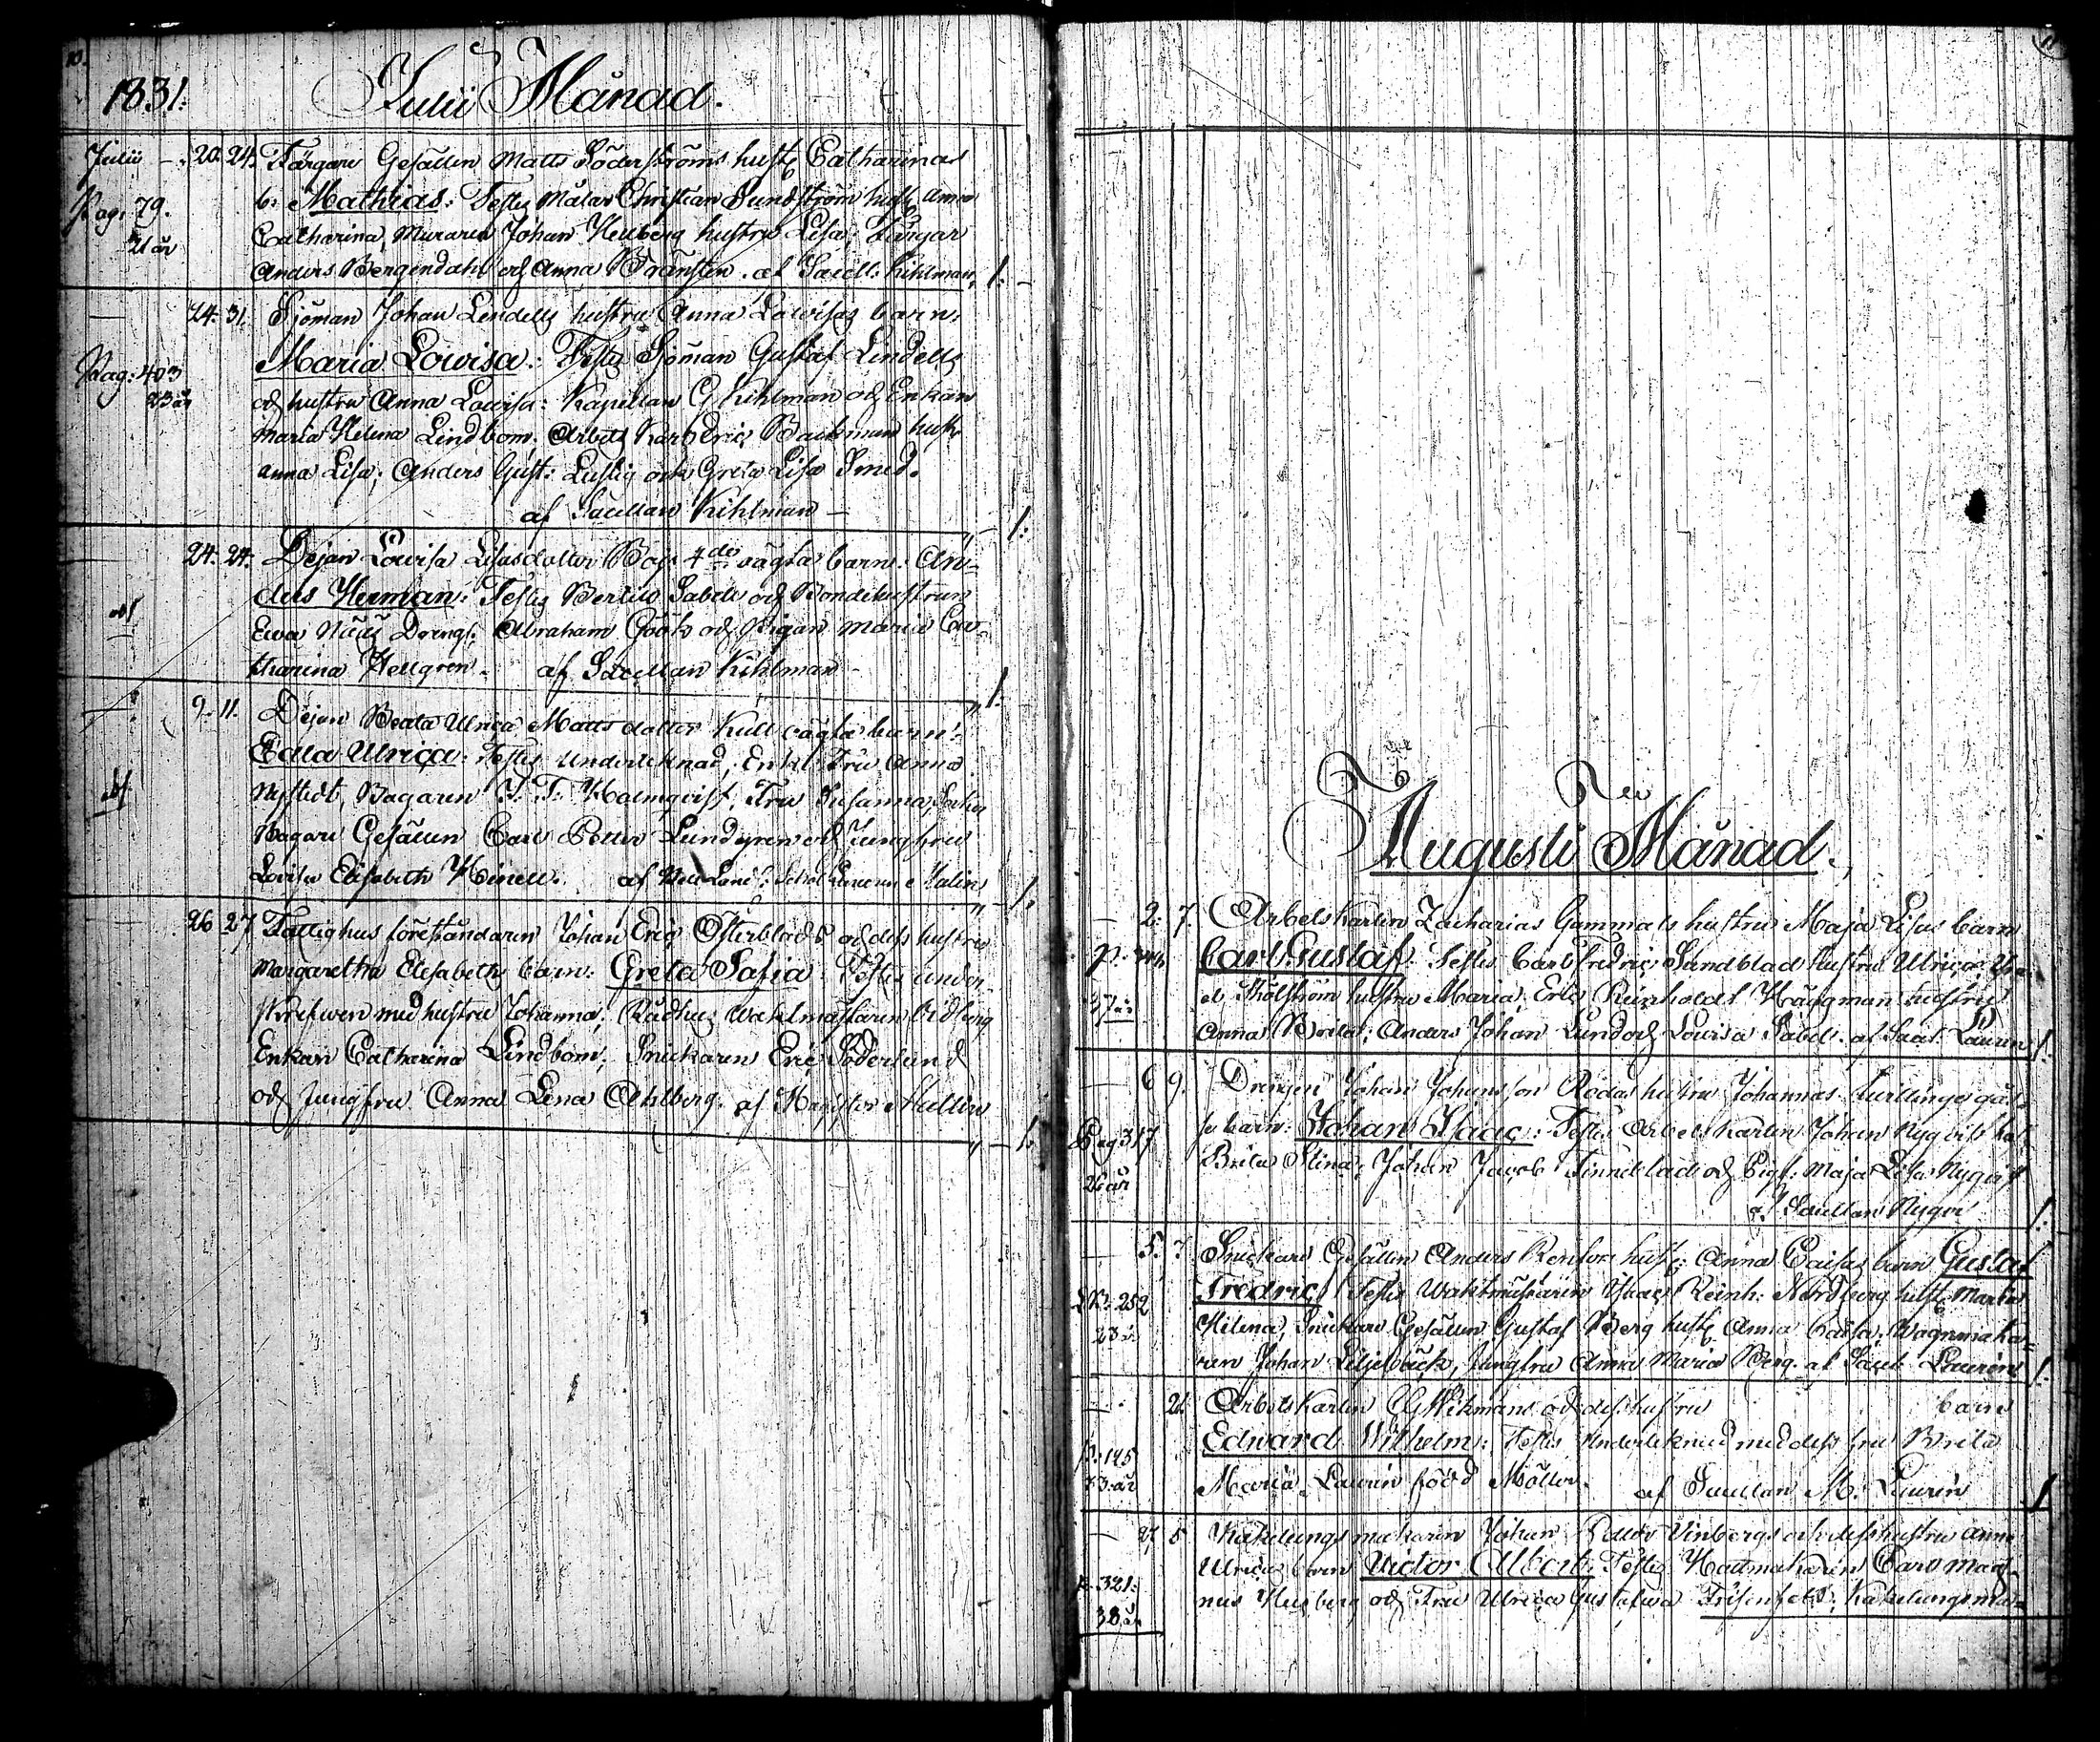 10.
1831. Julii Månad.
Julii 20. 24. Färgare Gesällen Matts Söderströms hust: Catharinas
Pag: 79. b: Mathias: Testes Målar Christian Sundström hust: Anna
21 år Catharina, Muraren Johan Heuberg hustru Lisa; Färgar
Anders Bergendahl och Anna Bränsten. af Sacell: Kihlman, 1:
24. 31. Sjöman Johan Lindells hustru Anna Lowisas barn:
Pag: 403 Maria Lowisa: Testes Sjöman Gustaf Lindells
23 år och hustru Anna Lowisa: Kapellan G Kihlman och Enkan
Maria Helena Lindbom. Arbets Karl Eric Backman hustr.
Anna Lisa; Anders Gust: Lustig och Greta Lisa Smed.
af Sacellan Kihlman — 1:
24. 24. Dejan Lowisa Lisasdotter 4de oägta barn: An-
ders Herman: Testes Sabell och Bondehustrun
Ewa Drengs: Abraham Göök och Pigan Maria Ca-
tharina Hellgren. af Sacellan Kihlman — 1.
9. 11. Dejan Beata Ulrica Mattsdotter Kull oägta barn:
Edla Ulrica: Testes Undertecknad, Enk: Fru Anna
Nystedt, Bagaren J. T. Holmqvist, Fru Susanna,
Bagare Gesällen Carl Petter Lundgren och Jungfru
Lovisa Elisabeth Hinell. af 1:
26 27 Fattighus föreståndaren Johan Eric Österblads och dess hustru
Margaretha Elisabeths barn: Greta Safia Testes under-
skrefwen med hustru Johanna; Rådhus Waktmästaren
Enkan Catharina Lindbom; Snickaren Eric Söderlund
och Jungfru Anna Lena Ahlberg. af Magister Mellin
1:
11
Augusti Månad.
2. 7. Arbetskarlen Zacharias Gammals hustru Maja Lisas barn
p. Carl Gustaf. Testes Carl Fredric Sandblad hustru Ulrica,
37 år Sjölström hustru Maria; Eric Reinholdt Hängman hustru
Anna Brita; Anders Johan Lund och Lovisa Sabel. af Sac. Laurin 1.
6 9. Drengen Johan Johansson Rodas hustru Johannas twillinge gås-
Pag 317 se barn: Johan Isaac: Testes Arbetskarlen Johan Nyqvist hus:
26 år Brita Stina; Johan Jacob Finneblad och Pig: Maja Lisa Nyqvist
af Sacellan 1.
5. 7. Snickare Gesällen Anders Renfors hust: Anna Caisas barn Gustaf
252 Fredric Testes Waktmästaren Isaac Reinh: Nordberg hust: Maria
23 år Helena, Snickare Gesällen Gustaf Berg hust: Anna Caisa, Wagnmaka-
ren Johan Liljebäck, Jungfru Anna Maria Berg. af Sacel: Laurin 1.
21. Arbetskarlen G Wikmans och dess hustru barn
p. 145 Edward Wilhelm: Testes Undertecknad med dess fru Brita
33 år Maria Laurin född Möller. af Sacellan M: Laurin 1
27 5 Kakelungsmakaren Johan Vinbergs och dess hustru Anna
p. 321: Ulricas barn Victor Albert. Testes Hattmakaren Carl Mag-
38 år nus Husberg och Fru Ulrica Gustafwa Frisenfelt; Kakelungsma-